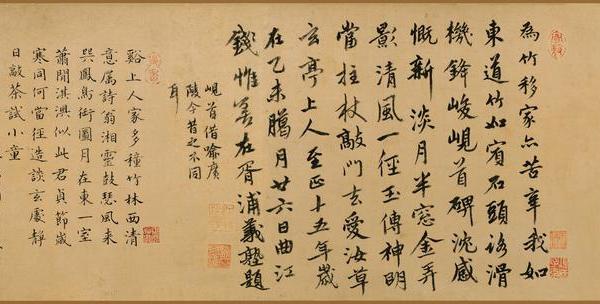 為竹移家亦苦辛我如
東道竹如賓石頭路滑
機鋒峻峴首碑沈感
慨新淡月半窓金弄
影清風一徑玉傳神明
當拄杖敲門去愛汝草
玄亭上人至正十五年歲
在乙未臈月廿六日曲江
錢惟善在胥浦義塾題
峴首借喻廣
陵今昔之不同
耳
谿上人家多種竹林西清
意属詩翁湘靈鼓瑟風來
吳鳳術圖月在東一室
蕭閒淇澳似此君貞節歲
寒同何當徑造談玄處靜
日敲茶試小童